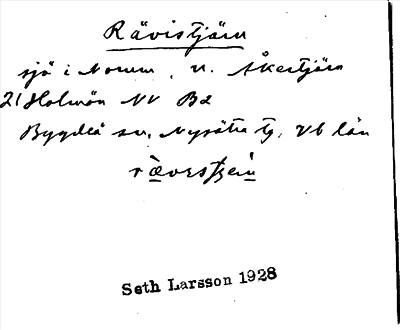 Rävistjärn
sjö i Norum, n. Åkertjärn
21 Holmön NV B2
Bygdeå sn, Nysätra tg, Vb län
Seth Larsson 1928